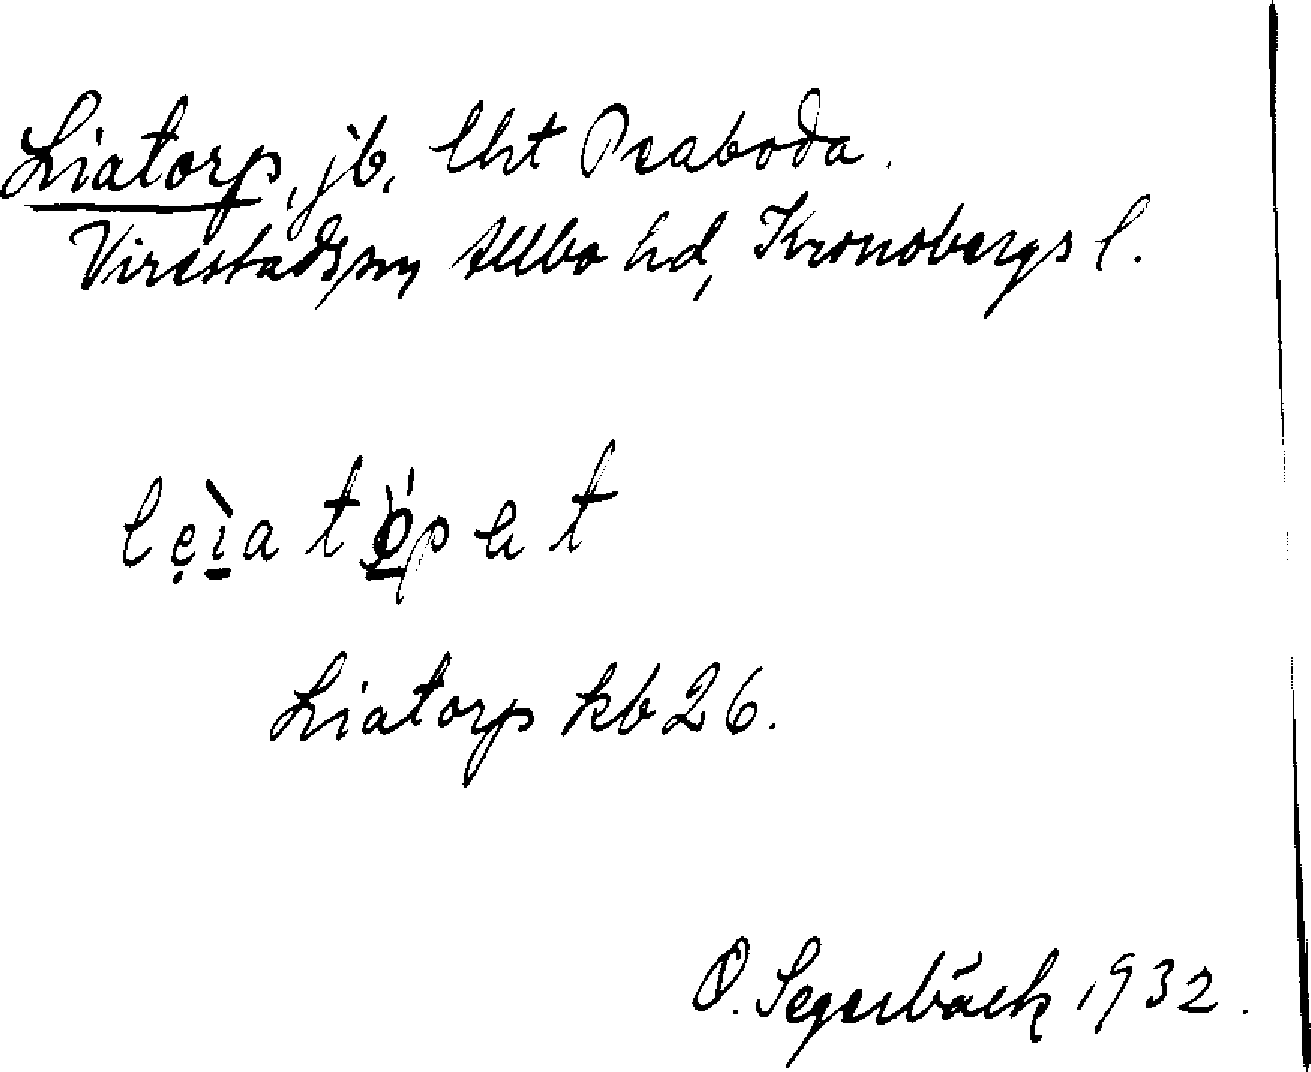 Liatorp, jb, lht Peaboda.
Virestads sn, Allbo hd, Kronobergs l.
Liatorp kb 26.
O. Segerbäck 1932.